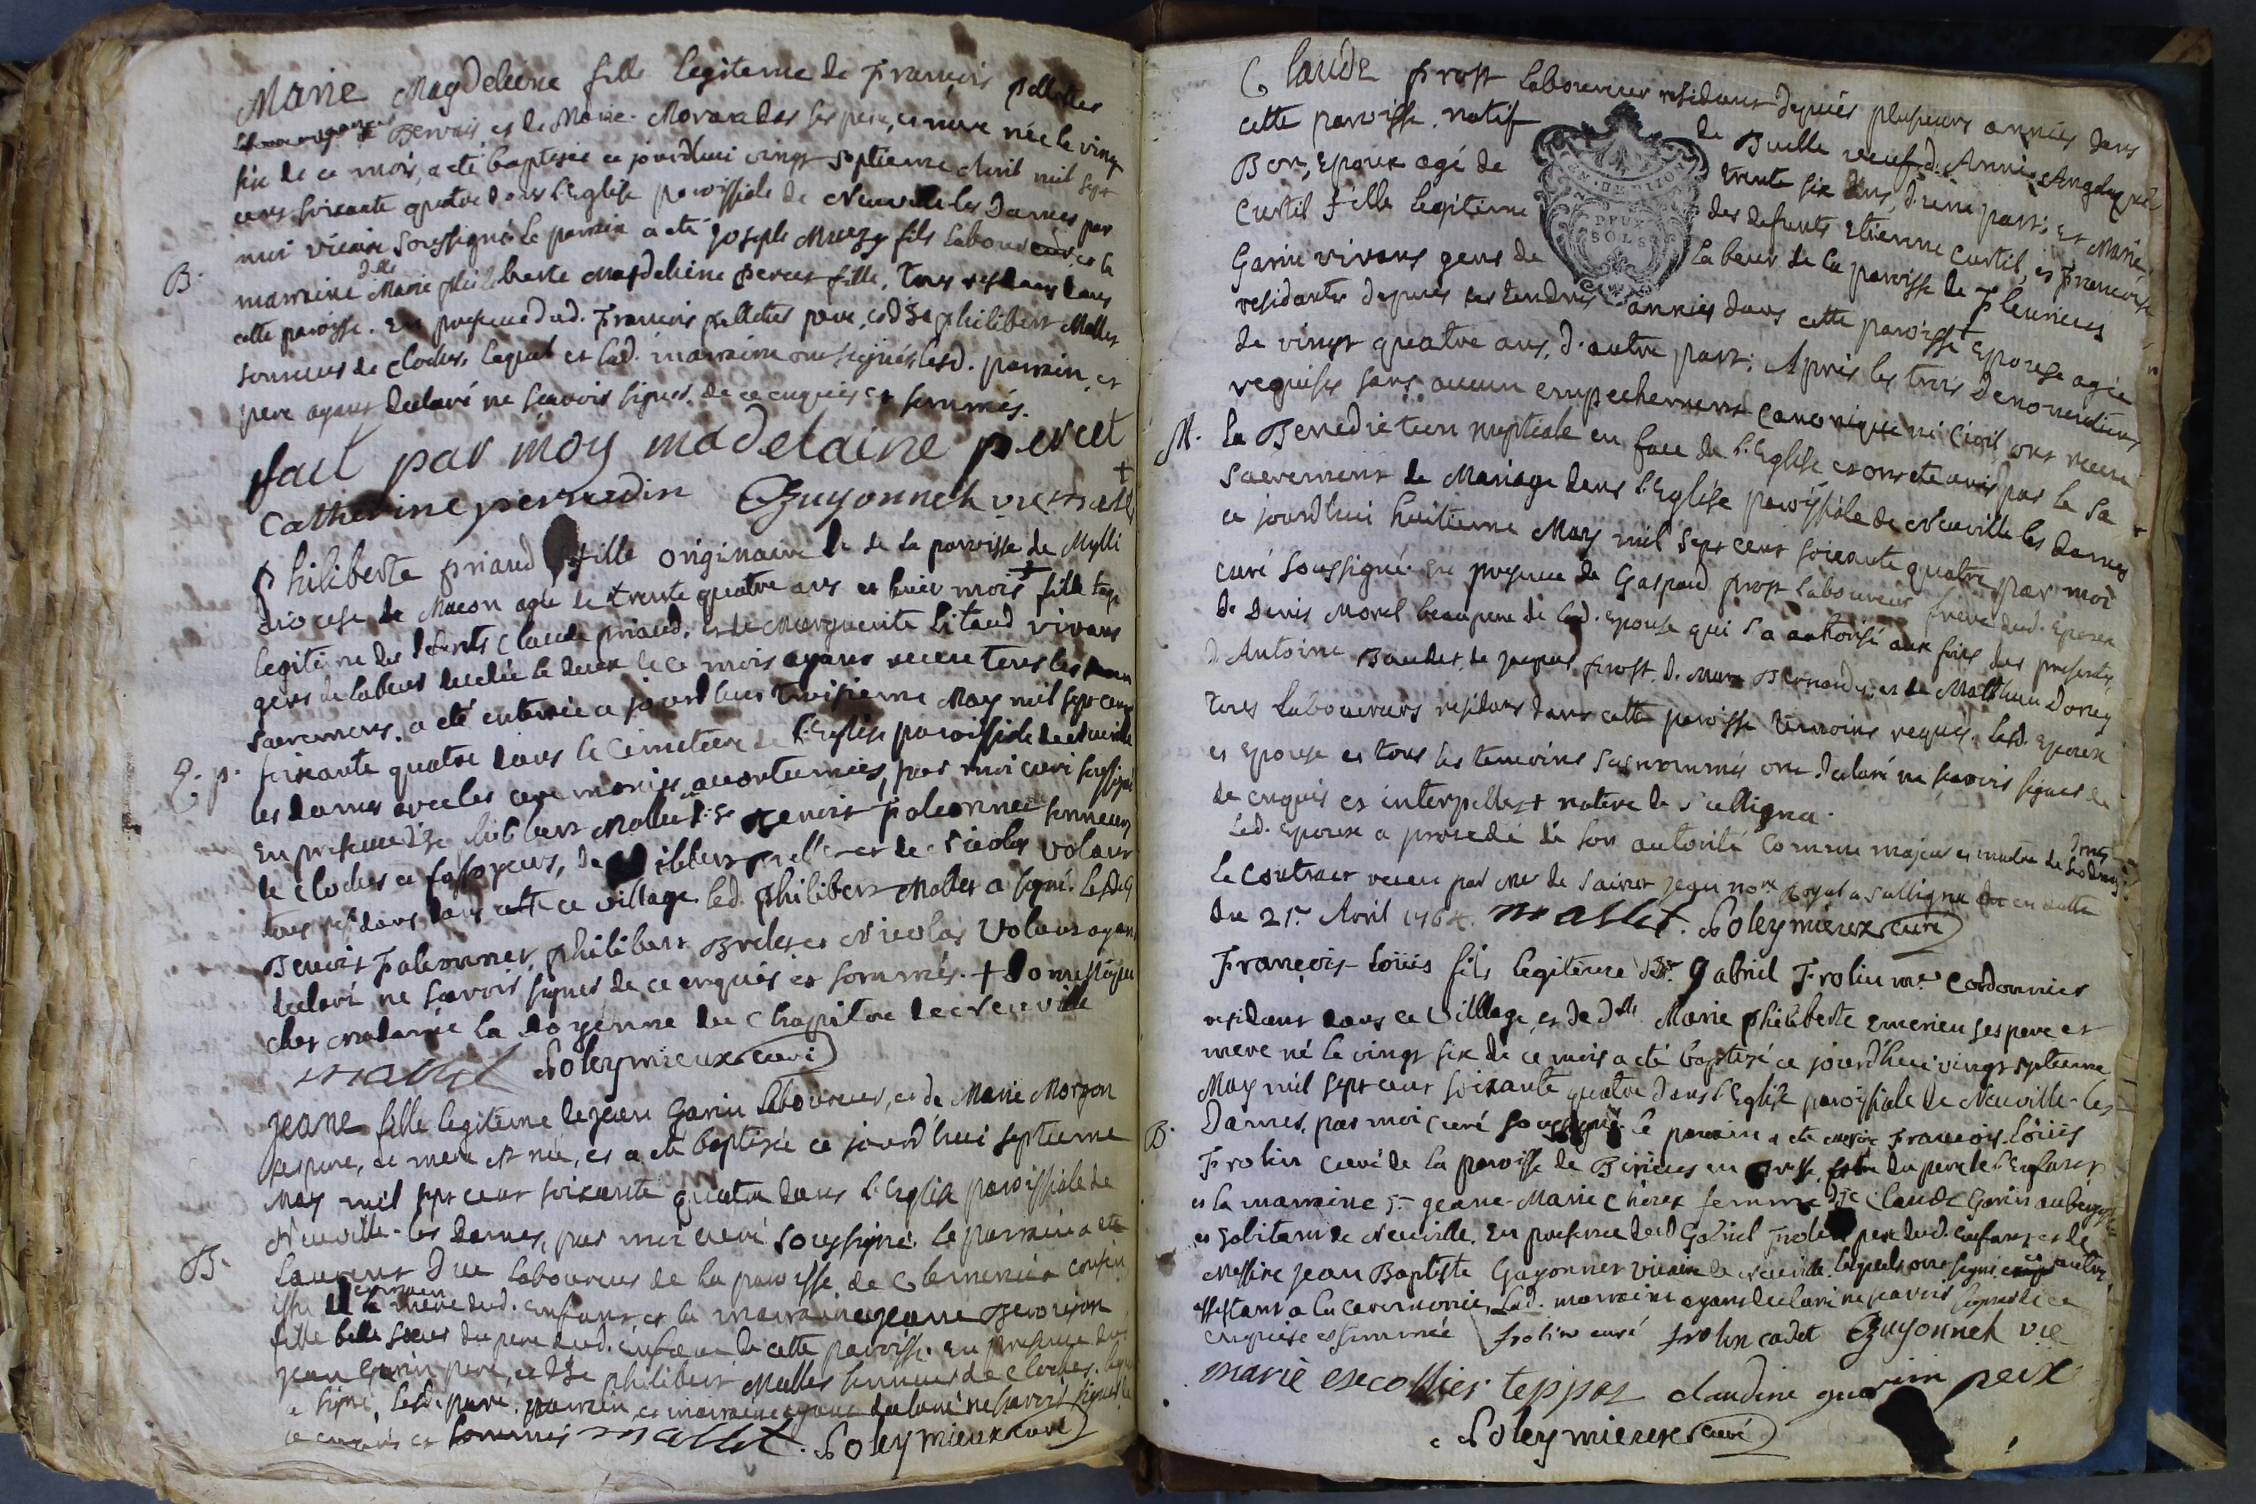 Marie Magdeleine fille legiteme de François pelletier
Gervais, et de Marie Moraxdas ses pere, et mere née le vingt
six de ce mois, a eté baptisée ce jourdhui vingt septieme Avril mil sept
cens soixante quatre dans l'Eglise paroissiale de Neuville les Dames par
moi vicaire soussigné le parrain a eté joseph Muezy fils laboureur et la
B.
marraine dlle Marie philiberte Magdeleine Percet fille, tous residans dans
cette paroisse. En presence dud. François pelletier pere, et dSr philibert Mallet
sonneur de cloches, lequel et lad. marraine ont signés lesd. parrain, et
pere ayans declaré ne sçavoir signer, de ce enquis et sommés.
fait par moy madelaine percet
Catherine perradin Guyonnet vic mallet
philiberte priaud fille originaire de la paroisse de Mylli
diocese de Macon agée de trente quatre ans et huit mois + fille
legitime des defunts Claude priaud, et de Marguerite Litaud vivans
gens de labeur decedée le deux de ce mois ayant receu tous les
sacremens, a eté enterrée ce jourdhui troisieme May mil sept cens
S. p.
soixante quatre dans le Cimetiere de l'Eglise paroissiale de Neuville
les dames avec les ceremonies accoutumées, par moi curé soussigné
En presence dSr philibert Mallet, dSr Benoit falconnet sonneurs
de cloches et fossoyeurs, de philibert et de Nicolas Volant
tous residans dans ce village led. philibert Mallet a signé. lesd.
Benoit Falconnet, philibert et Nicolas Volant ayans
declaré ne sçavoir signer de ce enquis et sommés. + domestique
chez madame la doyenne du Chapitre de Neuville
mallet Soleymieux curé
jeane fille legiteme de jean Garin laboureur, et de Marie Morgon
ses pere, et mere est née, et a eté baptisée ce jourd'hui septieme
May mil sept cent soixante quatre dans l'Eglise paroissiale de
Neuville-les Dames, par moi curé soussigné. le parrain a eté
B.
Laurent Duc laboureur de la paroisse de Clemencia cousin
issu germain de la mere dud. enfant et la marraine jeane
fille belle soeur du pere dud. enfant de cette paroisse. En presence dud.
jean Garin pere, et dSr philibert Mallet sonneur de cloches. lequel
a signé, lesd. pere, parrain, et marraine ayans declaré ne sçavoir signer de
ce enquis et sommés mallet. Soleymieux curé
Claude prost laboureur residant depuis plusieurs années dans
cette paroisse, natif de Buelle veuf d'Anne
Bon, Epoux agé de trente six ans, d'une part; et Marie
Curtil fille legiteme des defunts Etienne Curtil, et Françoise
Garin vivans gens de labeur de la paroisse de Fleurieux
residante depuis ses tendres années dans cette paroisse Epouse agée
de vingt quatre ans, d'autre part; Après les trois denonciations
requises sans aucun empechement canonique ni civil, ont receu
M.
la Benediction nuptiale en face de l'Eglise et ont eté unis par le Sa
crement de Mariage dans l'Eglise paroissiale de Neuville les Dames
ce jourdhui huitieme May mil sept cent soixante quatre par moi
curé soussigné. En presence de Gaspard prost laboureur frere dud. Epoux
de Denis Morel beaupere de lad. Epouse qui l'a authorisé aux fins des presentes,
d'Antoine Baudet, de jaques prost, de Marc Bernardy, et de Matthieu Dorey
tous laboureurs residans dans cette paroisse temoins requis. lesd. Epoux
et Epouse et tous les temoins susnommés ont declaré ne sçavoir signer de
ce enquis et interpellés + notaire de Sulligna.
Led. Epoux a procedé de son autorité comme majeur et maitre de ses droits
Le contract receu par Me de Saint jean nore Royal a Sulligna en datte
du 21e Avril 1764. mallet. Soleymieux curé
François-loüis fils legiteme dSr. Gabriel Frolin me Cordonnier
residant dans ce Village, et de dlle Marie philiberte Emerieu ses pere et
mere né le vingt six de ce mois a eté baptisé ce jourdhui vingt septieme
May mil sept cent soixante quatre dans l'Eglise paroissiale de Neuville-les
B.
Dames, par moi curé soussigné. le parrain a eté messire François-Loüis
Frolin curé de la paroisse de Birieux en Bresse, frere du pere de l'Enfant
et la marraine Sr jeane-Marie femme dSr Claude Garin aubergiste
et habitant de Neuville. En presence dud. Gabriel Frolin pere dud. enfant et de
Messire Jean Baptiste Guyonnet vicaire de Neuville. lesquels ont signé et autres
assistans a la ceremonie, Lad. marraine ayant declaré ne sçavoir signer de ce
enquise et sommée frolin curé frolin cadet Guyonnet vic
marie escollier teppet claudine guerin peix
Soleymieux curé